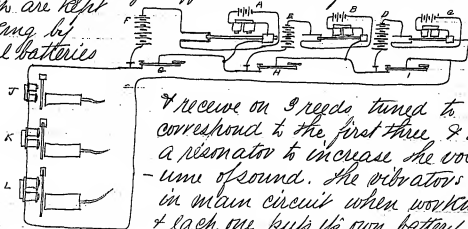 are kept
ing by
batteries
F A E B D C
G H I
J
K
L
& receive on 3 reeds tuned to
correspond to the first three &
a resonator to increase the vol
-ume of sound. The vibrators
in main circuit when work
& each one has its own batter